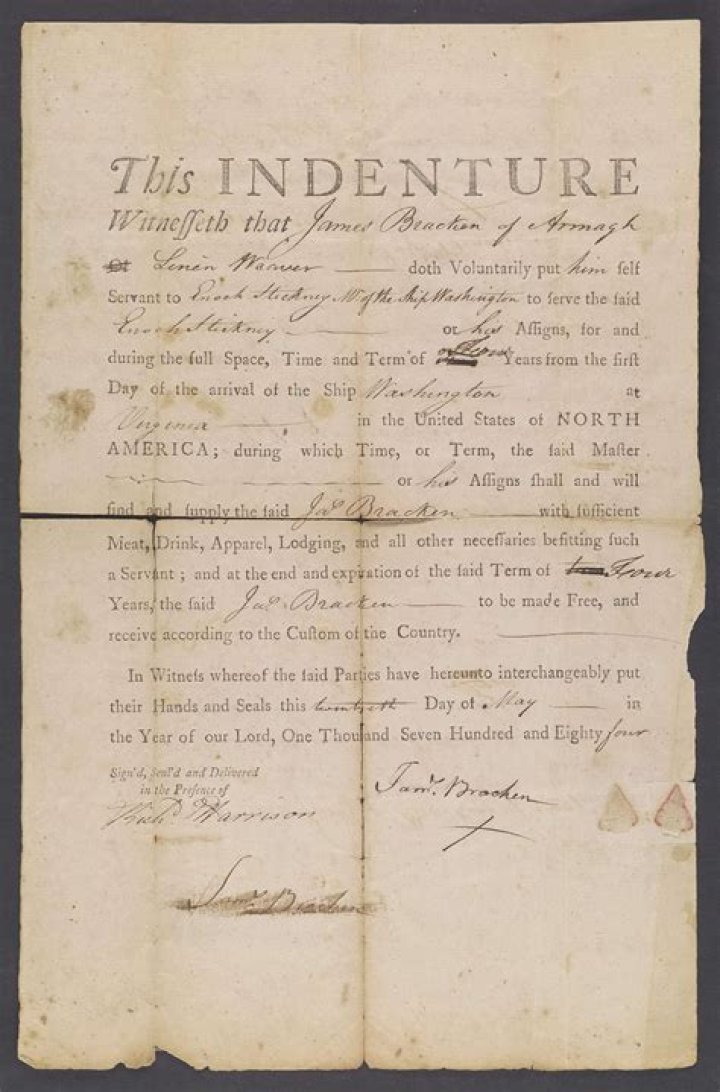 This INDENTURE
Witneſſeth that James Bracken of Armagh
Linen Weaver doth Voluntarily put him ſelf
Servant to Enoch Stickney Mr of the Ship Washington to ſerve the ſaid
Enoch Stickney or his Aſſigns, for and
during the full Space, Time and Term of Four Years from the firſt
Day of the arrival of the Ship Washington at
Virginia in the United States of NORTH
AMERICA; during which Time, or Term, the ſaid Maſter
or his Aſſigns ſhall and will
find and ſupply the ſaid Jas Bracken with ſufficient
Meat, Drink, Apparel, Lodging, and all other neceſſaries befitting ſuch
a Servant; and at the end and expiration of the ſaid Term of Four
Years, the ſaid Jas Bracken to be made Free, and
receive according to the Cuſtom of the Country.
In Witneſs whereof the ſaid Parties have hereunto interchangeably put
their Hands and Seals this twentieth Day of May in
the Year of our Lord, One Thouſand Seven Hundred and Eighty four
Sign'd, Seal'd and Delivered
in the Presence of
Richd Harrison
Jams. Bracken
X
Jams. Bracken